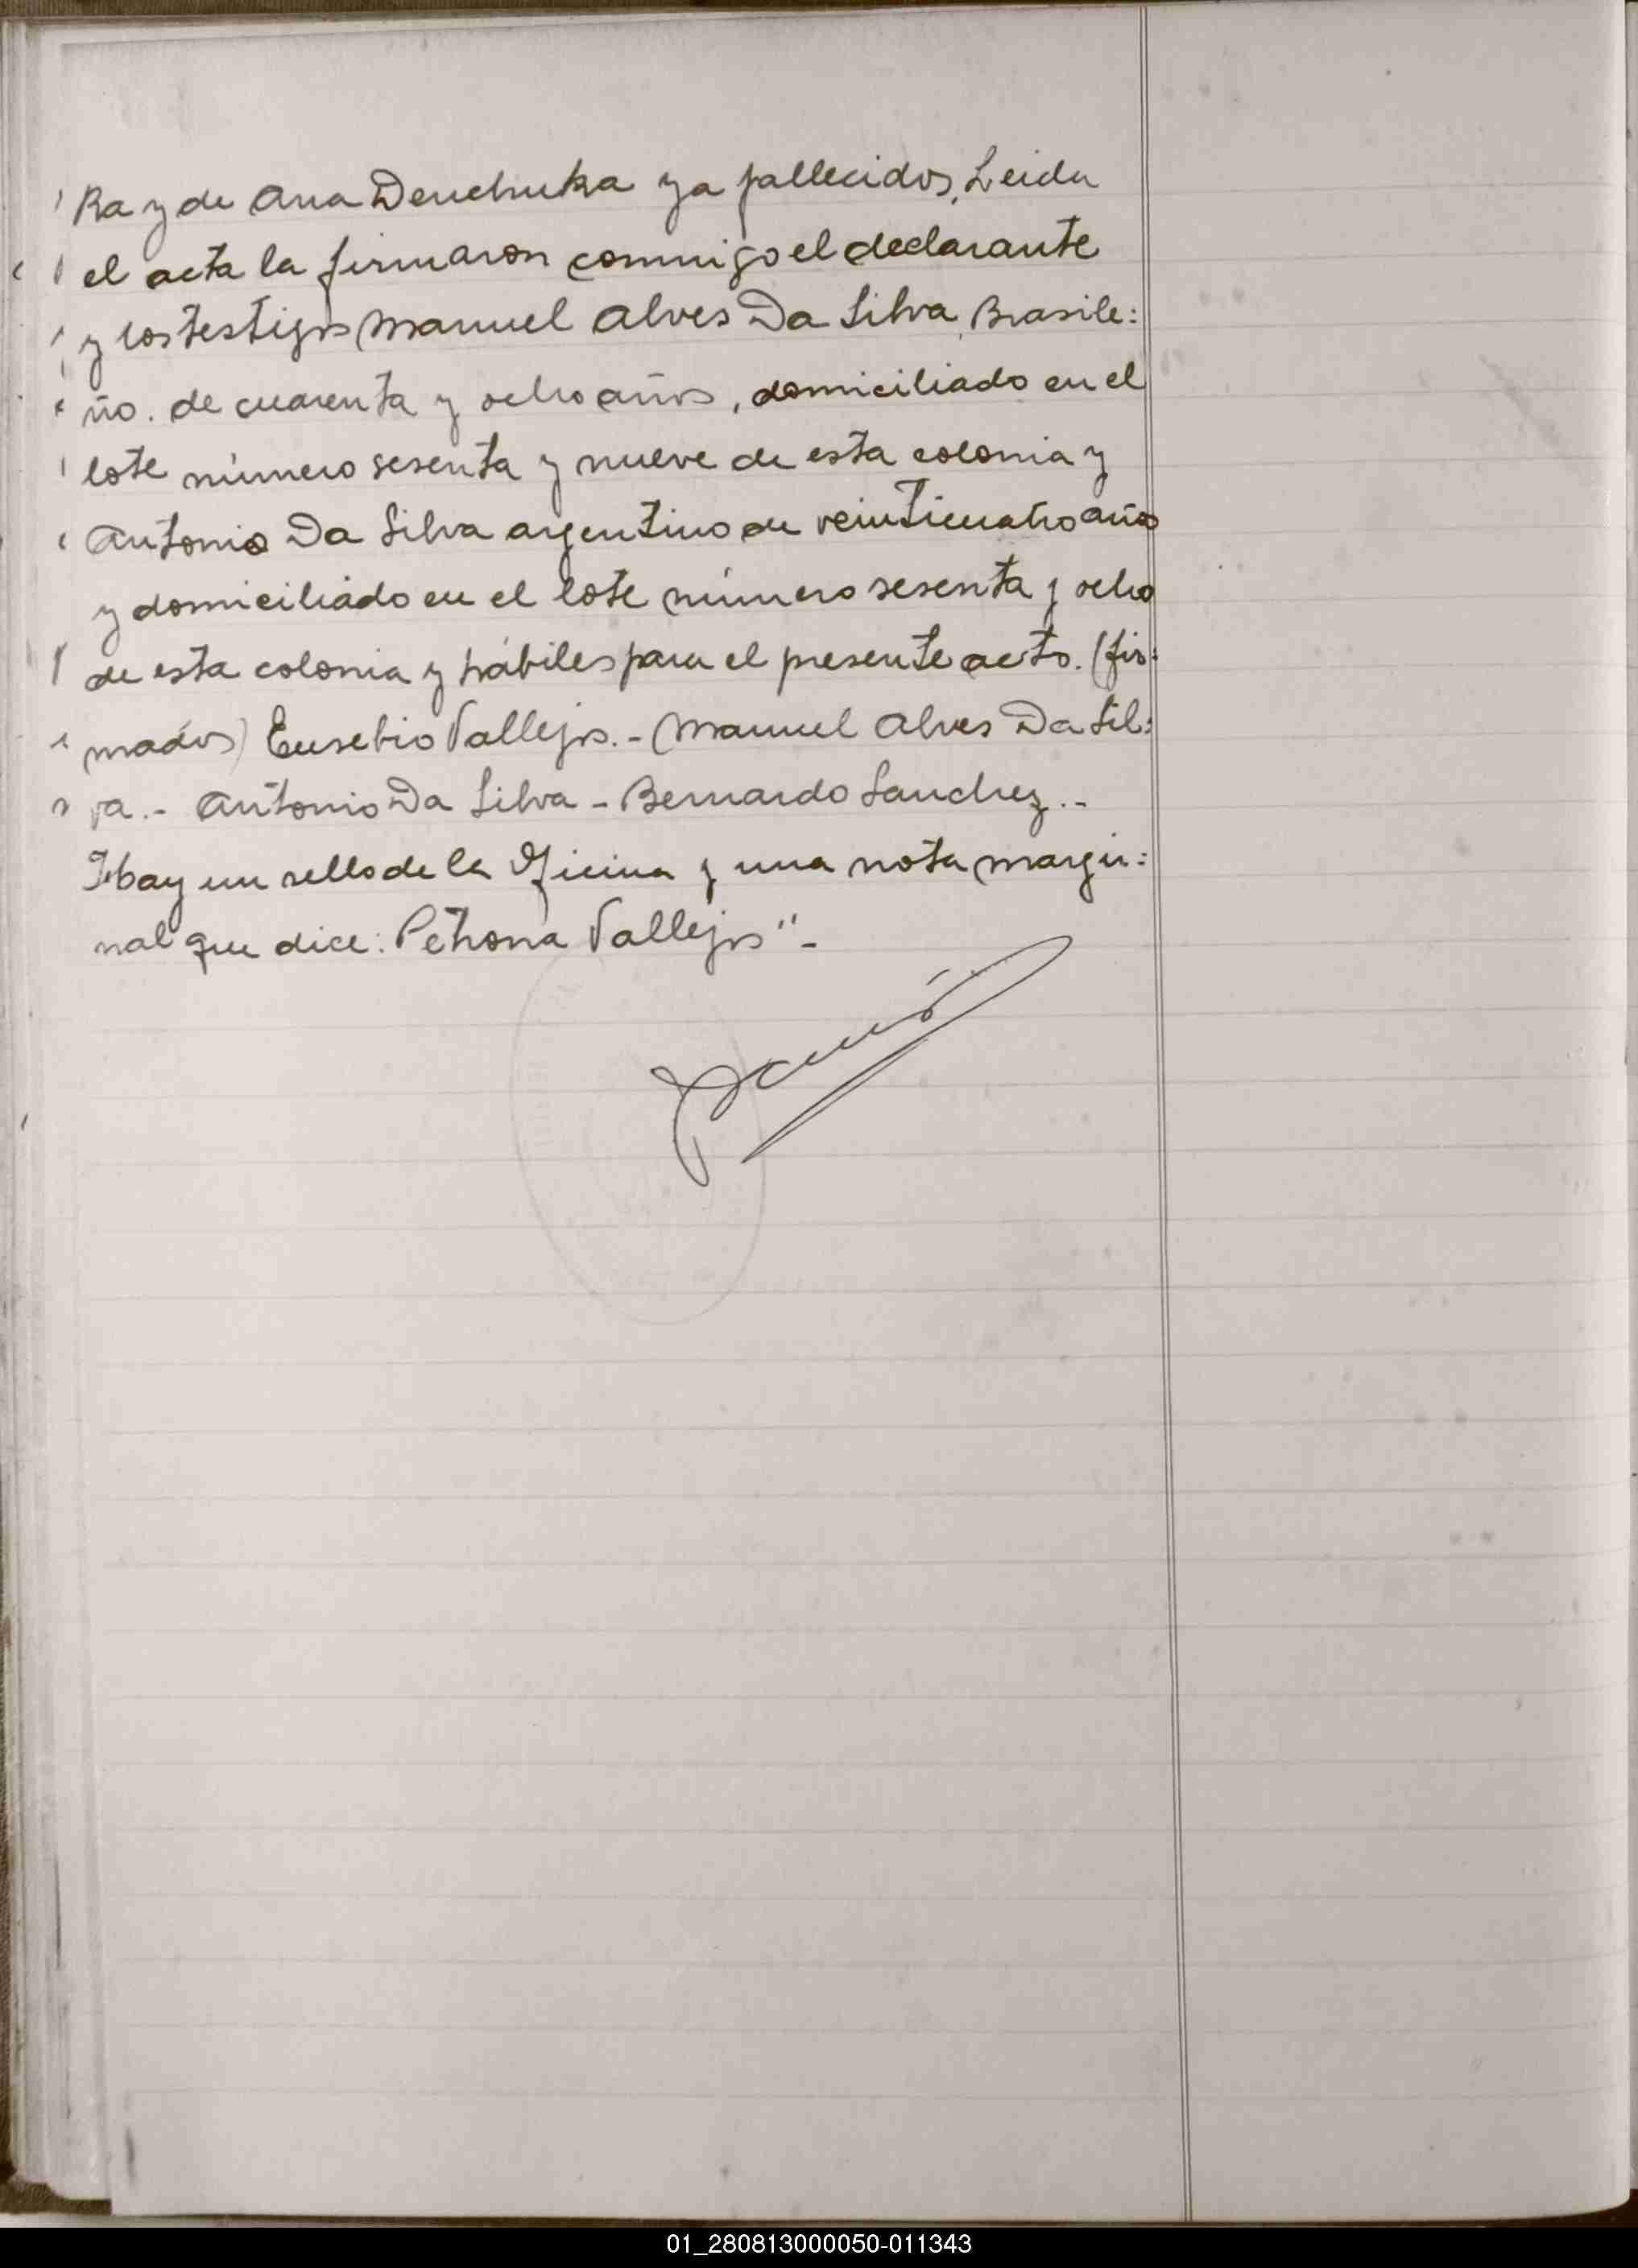 Ka y de Ana Denchuka ya fallecidos, Leida
el acta la firmaron conmigo el declarante
y los testigos Manuel Alves Da Silva, Brasile:
ño. de cuarenta y ocho años, domiciliado en el
lote número sesenta y nueve de esta colonia y
Antonio Da Silva argentino de veinticuatro años
y domiciliado en el lote número sesenta y ocho
de esta colonia y hábiles para el presente acto. (fir:
mados) Eusebio Vallejos.- Manuel Alves Da Sil:
va.- Antonio Da Silva - Bernardo Sanchez.-
Hay un sello de la Oficina y una nota margi:
nal que dice: Petrona Vallejos"-
01_280813000050-011343